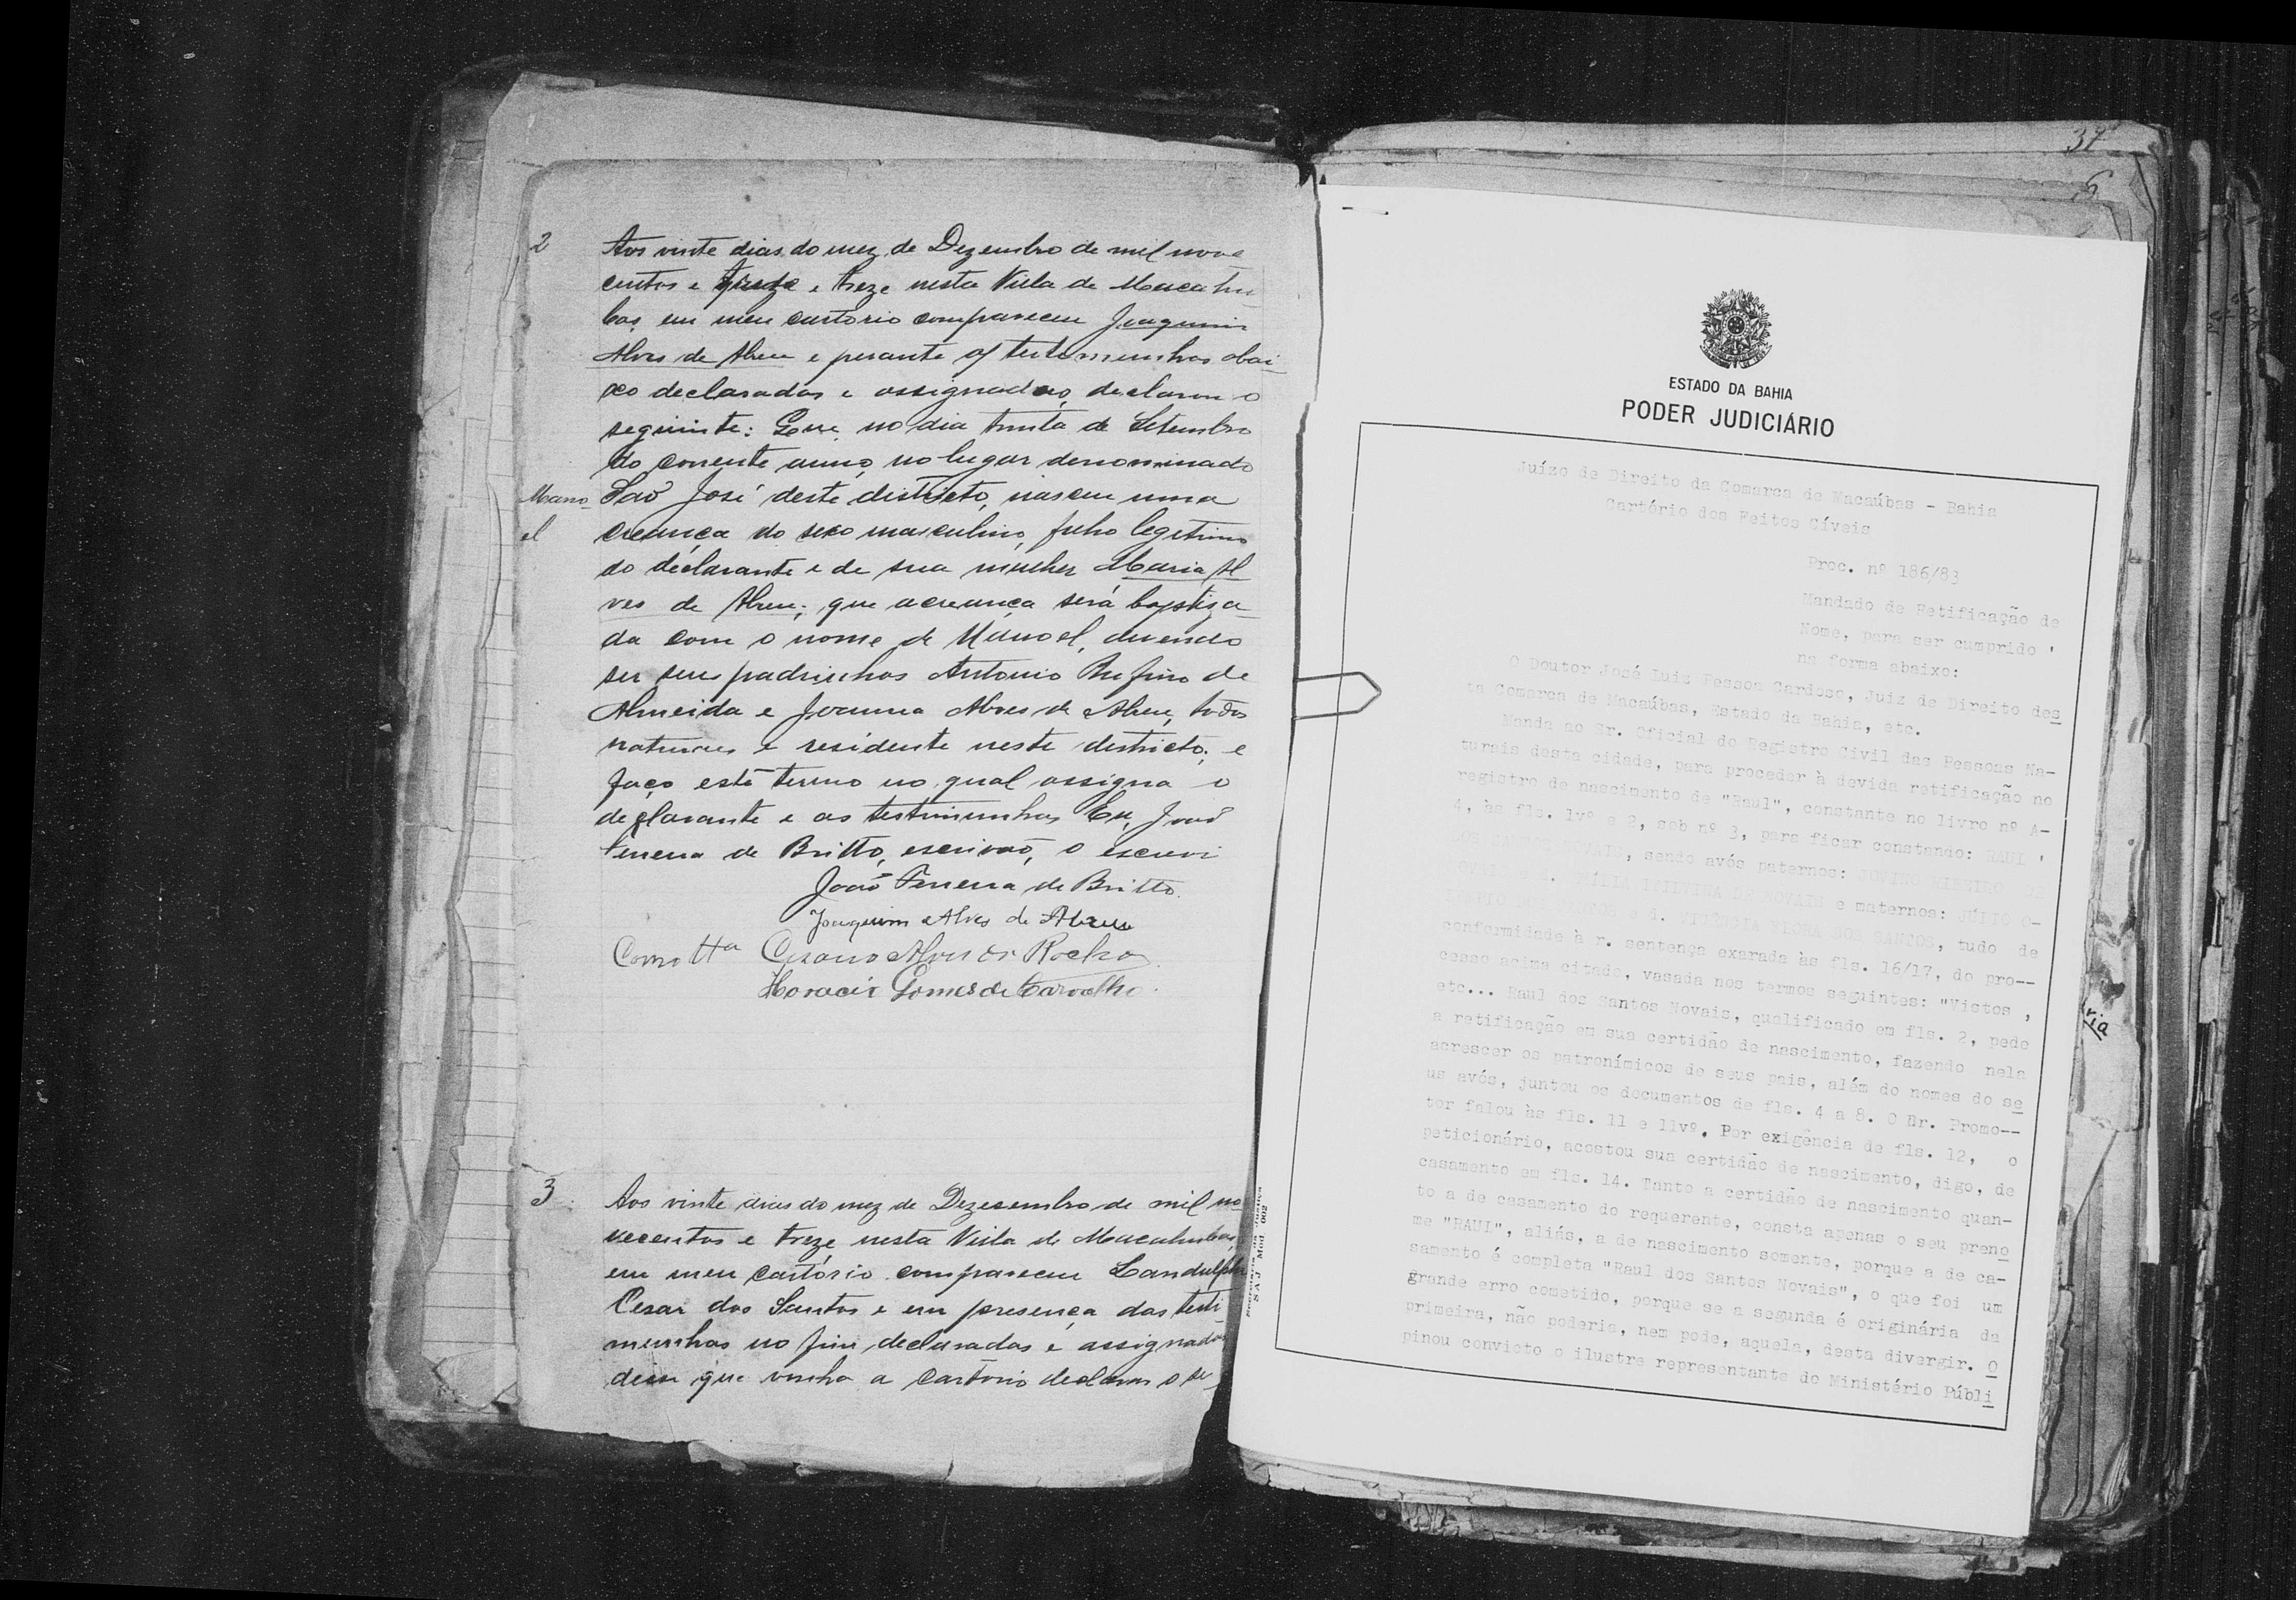 2
Aos vinte dias do mez de Dezembro de mil nove
centos e e treze nesta Villa de Macahu
bas em meu cartorio compareceu Joaquim
Alves de Abreu e perante as testemunhas abai
xo declaradas e assignadas, declarou o
seguinte: Que no dia trinta de Setembro
do corrente anno, no lugar denominado
Mano
el
São José deste districto, nasceu uma
creança do sexo masculino, filho legitimo
do declarante e de sua mulher Maria Al
ves de Abreu; que a creança será baptiza
da com o nome de Manoel, devendo
ser seus padrinhos Antonio Rufino de
Almeida e Joanna Alves de Abreu, todos
naturaes e residente neste districto; e
faço este termo no qual assigna o
declarante e as testimunhas Eu, João
Ferreira de Britto, escrivão, o escrevi
João Ferreira de Britto.
Joaquim Alves de Abreu
Como tta Alves da Rocha
Horacio Gomes de Carvalho.
3
Aos vinte dias do mez de Dezesembro de mil no
vecentos e treze nesta Villa de Macahubas,
em meu cartorio compareceu Landulpho
Cesar dos Santos e em presença das testi
munhas no fim declaradas e assignadas
disse que vinha a cartorio declarar o se
37
6
ESTADO DA BAHIA
PODER JUDICIÁRIO
Juízo de Direito da Comarca de Macaúbas - Bahia
Cartório dos Feitos Cíveis
Proc. nº 186/83
Mandado de Retificação de
Nome, para ser cumprido '
na forma abaixo:
O Doutor José Luiz Pessoa Cardoso, Juiz de Direito des
ta Comarca de Macaúbas, Estado da Bahia, etc.
Manda ao Sr. Oficial do Registro Civil das Pessoas Na-
turais desta cidade, para proceder à devida retificação no
registro de nascimento de "Raul", constante no livro nº A-
4, às fls. 1vº e 2, sob nº 3, para ficar constando: RAUL '
DOS sendo avós paternos:
e maternos: JÚLIO
DOS SANTOS, tudo de
conformidade à r. sentença exarada às fls. 16/17, do pro--
cesso acima citado, vasada nos termos seguintes: "Vistos ,
etc... Raul dos Santos Novais, qualificado em fls. 2, pede
a retificação em sua certidão de nascimento, fazendo nela
acrescer os patronímicos de seus pais, além do nomes do se
us avós, juntou os documentos de fls. 4 a 8. O Dr. Promo--
tor falou às fls. 11 e 11vº. Por exigência de fls. 12, o
peticionário, acostou sua certidão de nascimento, digo, de
casamento em fls. 14. Tanto a certidão de nascimento quan-
to a de casamento do requerente, consta apenas o seu preno
me "RAUL", aliás, a de nascimento somente, porque a de ca-
samento é completa "Raul dos Santos Novais", o que foi um
grande erro cometido, porque se a segunda é originária da
primeira, não poderia, nem pode, aquela, desta divergir. O
pinou convicto o ilustre representante do Ministério Públi
SAJ Mod. 002
ria